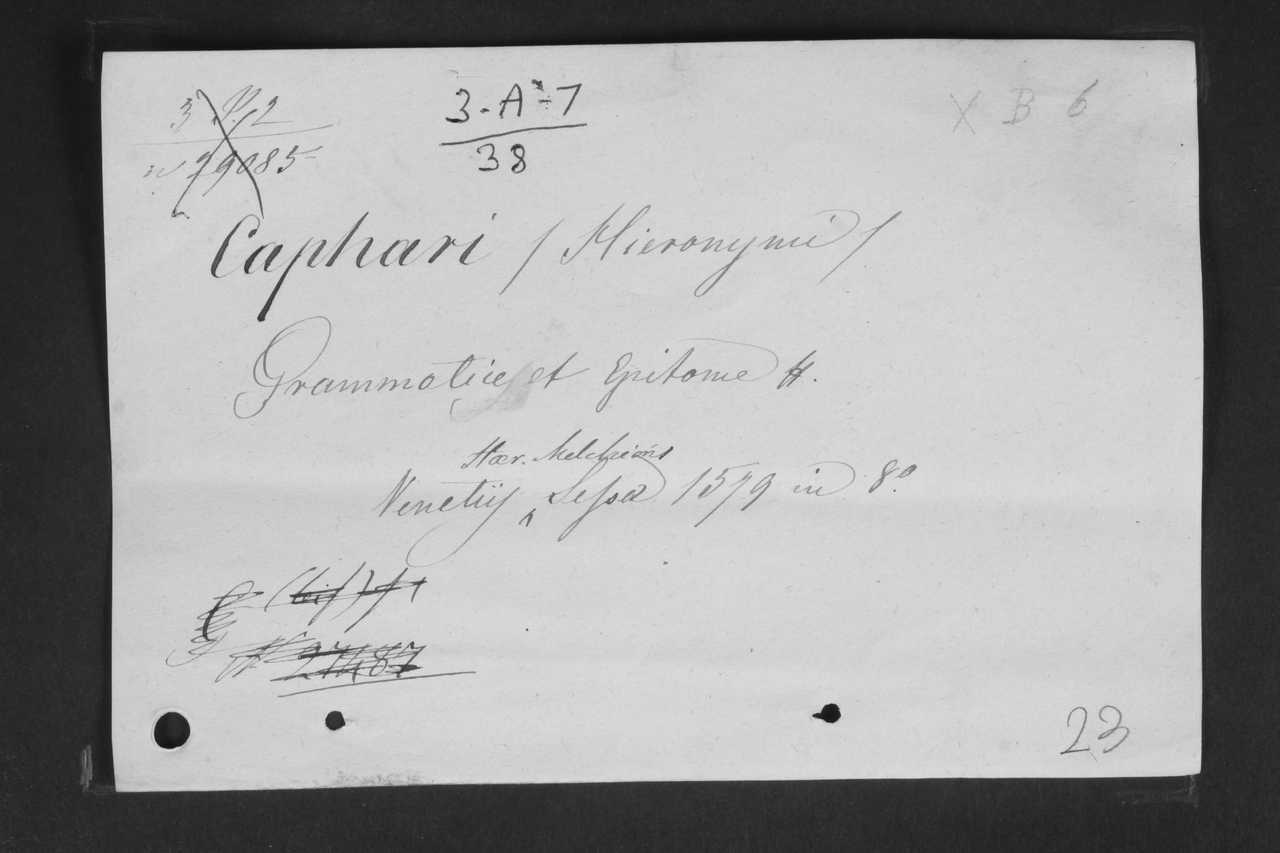 3 P. 2
29085
3-A-7
38
X B 6
Caphari / Hieronymi /
Grammatice et Epitome #.
Hær. Melchioris
Venetiis Lessæ 1579 in 8.º
(bis)
N 27487
23